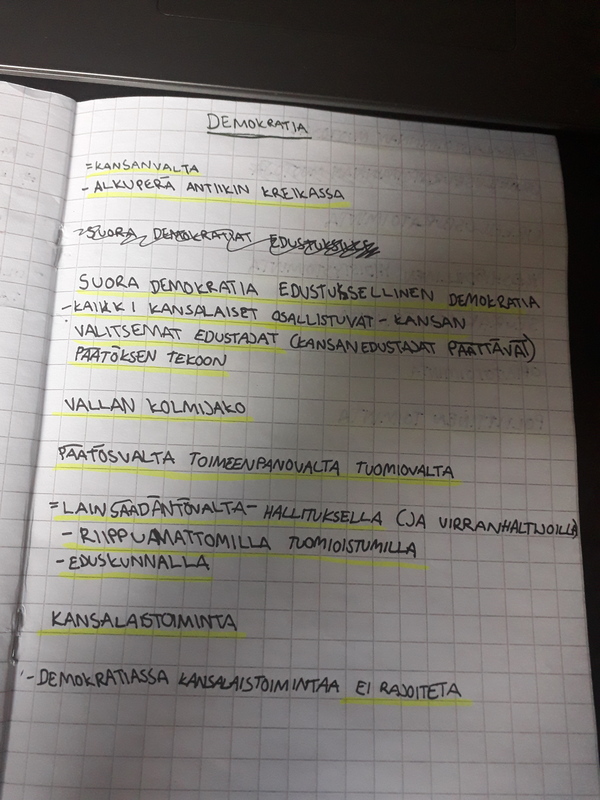 DEMOKRATIA
=KANSANVALTA
- ALKUPERÄ ANTIIKIN KREIKASSA
SUORA DEMOKRATIAT
SUORA DEMOKRATIA EDUSTUKSELLINEN DEMOKRATIA
- KAIKKI KANSALAISET OSALLISTUVAT - KANSAN
VALITSEMAT EDUSTAJAT (KANSANEDUSTAJAT PÄÄTTÄVÄT)
PÄÄTÖKSEN TEKOON
VALLAN KOLMIJAKO
PÄÄTÖSVALTA TOIMEENPANOVALTA TUOMIOVALTA
=LAINSÄÄDÄNTÖVALTA- HALLITUKSELLA (JA VIRRANHALTIJOILLA)
- RIIPPUMATTOMILLA TUOMIOISTUMILLA
- EDUSKUNNALLA
KANSALAISTOIMINTA
- DEMOKRATIASSA KANSALAISTOIMINTAA EI RAJOITETA